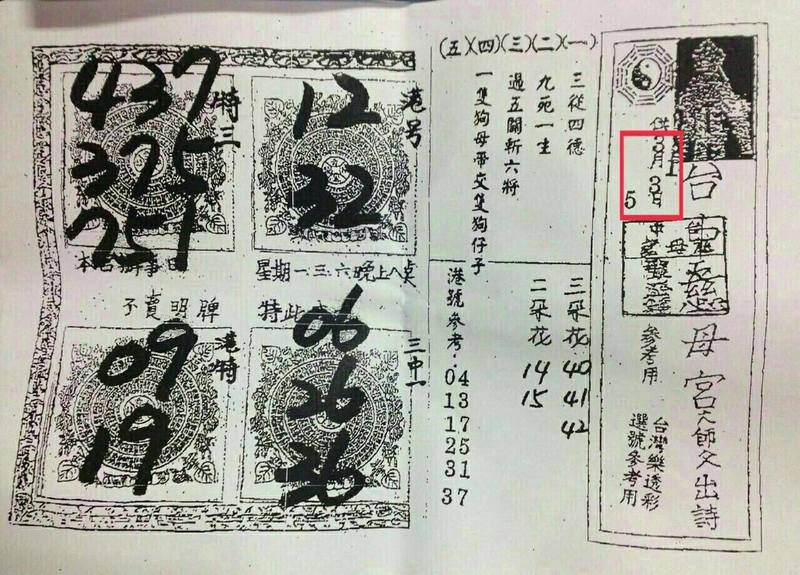 台中慈母宮大師父出詩
供3月3日
5
參考用
台灣樂透彩
選號參考用
(五)(四)(三)(二)(一)
三從四德
九死一生
過五關斬六將
一隻狗母帶六隻狗仔子
三朵花 40 41 42
二朵花 14 15
港號參考:04 13 17 25 31 37
港号
12
32
特三
437
375
251
星期一.三.六晚上八點
不賣明牌
特此
三中一
06
26
36
港特
09
19